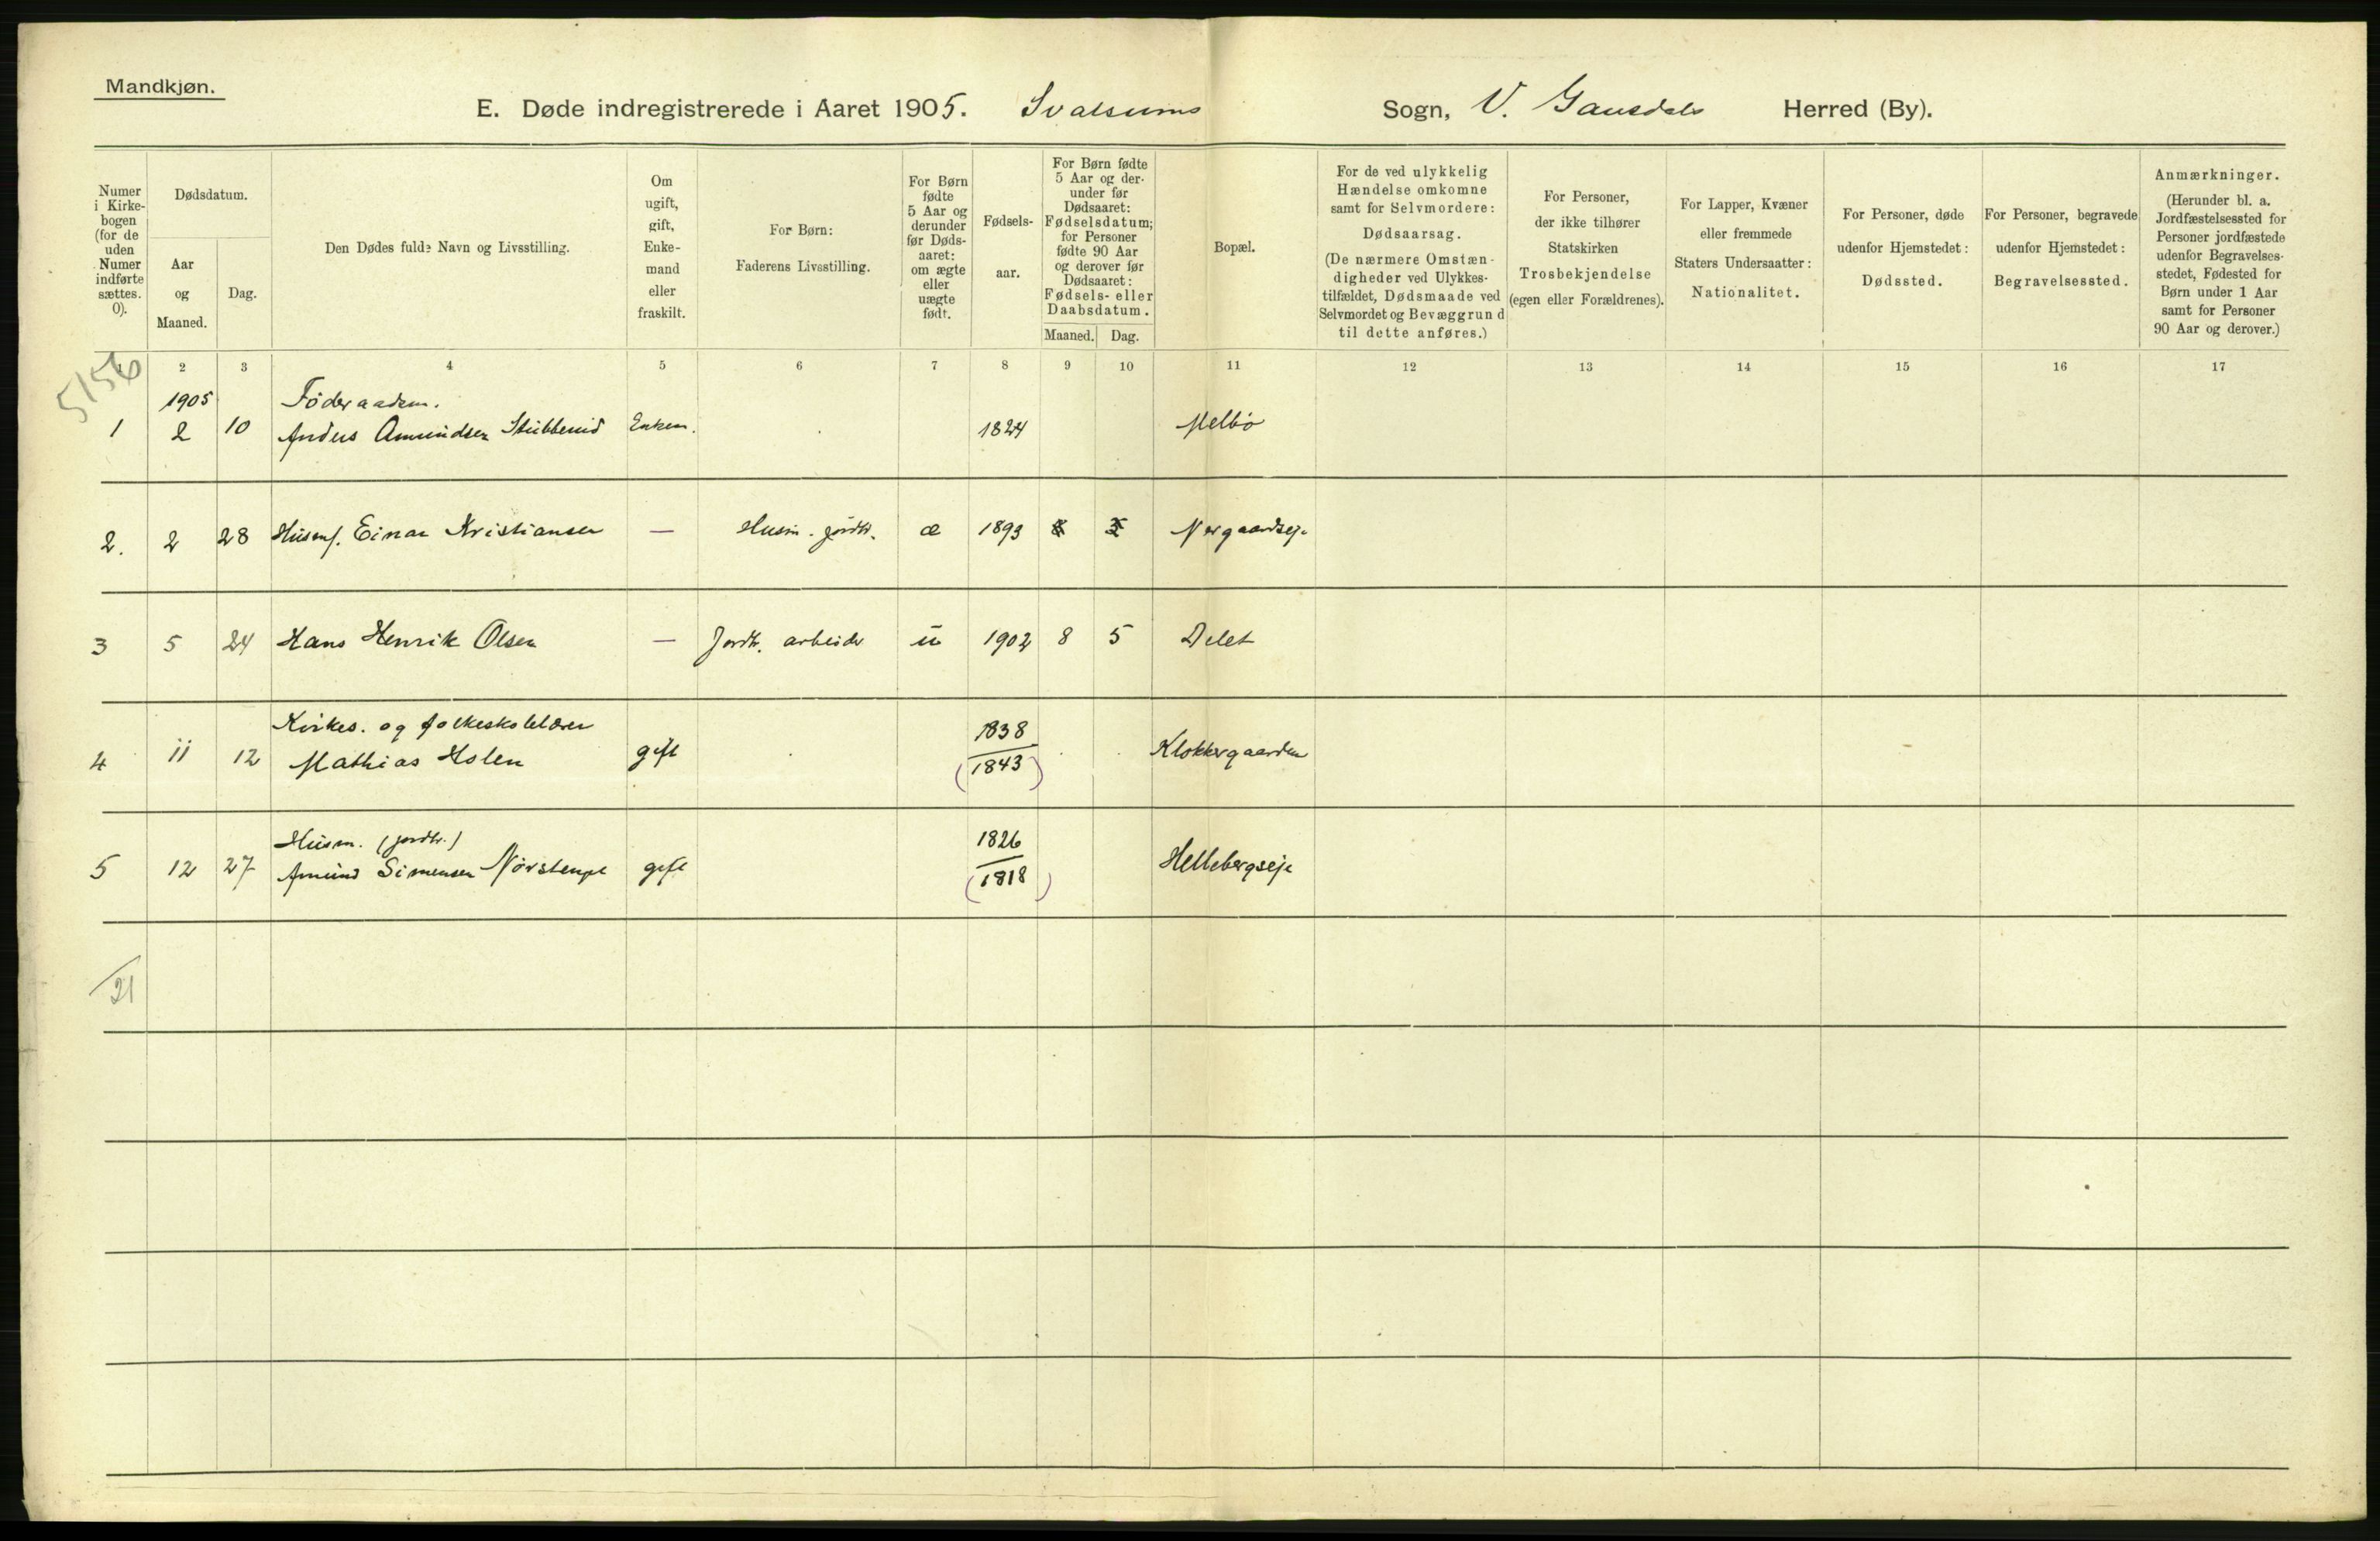 Mandkjøn.
E. Døde indregistrerede i Aaret 1905. Svatsums Sogn, V. Gausdals Herred (By).
Numer i Kirkebogen (for de uden Numer indførte sættes. 0).
Dødsdatum.
Aar og Maaned.
Dag.
Den Dødes fulde Navn og Livsstilling.
Om ugift, gift, Enkemand eller fraskilt.
For Børn:
Faderens Livsstilling.
For Børn fødte 5 Aar og derunder før Dødsaaret: om ægte eller uægte født.
Fødselsaar.
For Børn fødte 5 Aar og derunder før Dødsaaret: Fødselsdatum; for Personer fødte 90 Aar og derover før Dødsaaret: Fødsels- eller Daabsdatum.
Maaned. Dag.
Bopæl.
For de ved ulykkelig Hændelse omkomne samt for Selvmordere: Dødsaarsag.
(De nærmere Omstændigheder ved Ulykkestilfældet, Dødsmaade ved Selvmordet og Bevæggrund til dette anføres.)
For Personer, der ikke tilhører Statskirken Trosbekjendelse (egen eller Forældrenes).
For Lapper, Kvæner eller fremmede Staters Undersaatter: Nationalitet.
For Personer, døde udenfor Hjemstedet: Dødssted.
For Personer, begravede udenfor Hjemstedet: Begravelsessted.
Anmærkninger.
(Herunder bl. a. Jordfæstelsessted for Personer jordfæstede udenfor Begravelsesstedet, Fødested for Børn under 1 Aar samt for Personer 90 Aar og derover.)
1 2 3 4 5 6 7 8 9 10 11 12 13 14 15 16 17
5156
1905 Føderaadsm.
1 2 10 Anders Amundsen Stubberud Enkem. 1824 Melbø
2. 2 28 Husmf. Einar Kristiansen — Husm. jordbr. æ 1893 Norgaardseje
3 5 24 Hans Henrik Olsen — Jordbr. arbeider u 1902 8 5 Delet
Kirkes. og folkeskolelærer 1838
4 11 12 Mathias Holen gift (1843) Klokkergaarden
Husm. (jordbr.) 1826
5 12 27 Amund Simensen gift (1818) Hellebergseje
21